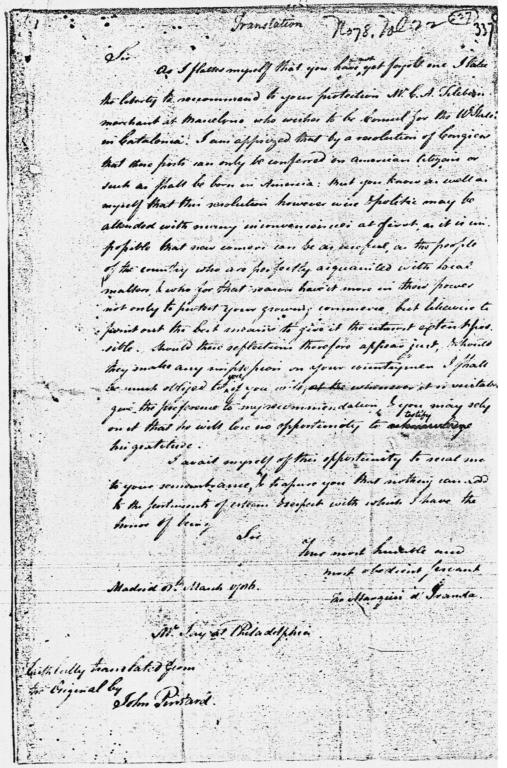 Translation No 78. Vol 22 337
Sir
As I flatter myself that you have not yet forgot me I take
the liberty to recommend to your protection Mr. C. A.
merchant at Barcelona who wishes to be Consul for the Ud States
in Catalonia: I am apprized that by a resolution of Congress
that those posts can only be conferred on American citizens or
such as shall be born in America: but you know as well as
myself that this resolution however wise & politic may be
attended with many inconveniences at first, as it is im-
possible that new comers can be as useful, as the people
of the country who are perfectly acquainted with local
matters, & who for that reason have it more in their power
not only to protect your growing commerce, but likewise to
point out the best means to give it the utmost extent pos-
sible. Should these reflections therefore appear just, & should
they make any impression on your countrymen I shall
be much obliged to you if you will, it is
give the preference to my recommendation, & you may rely
on it that he will lose no opportunity to testify
his gratitude.
I avail myself of this opportunity to recal me
to your remembrance, & to assure you that nothing can add
to the sentiments of esteem & respect with which I have the
honor of being
Sir
Your most humble and
most obedient servant
The Marquis d'Iranda.
Madrid March 1786.
Mr Jay at Philadelphia
faithfully translated from
the Original by
John Pintard.